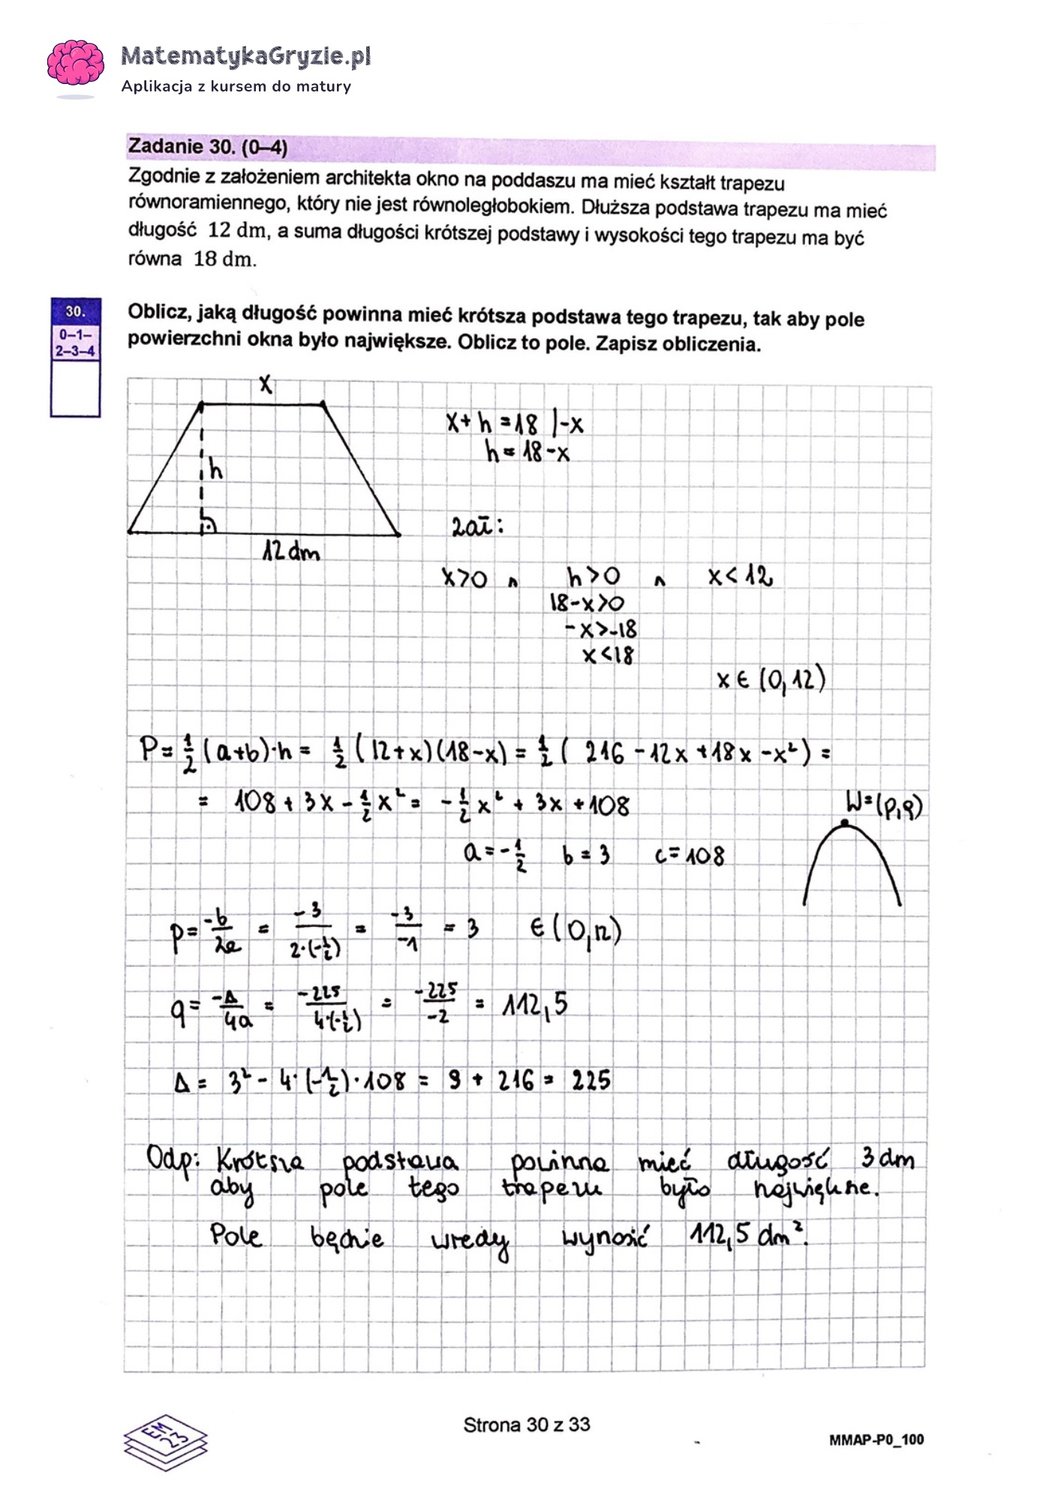 MatematykaGryzie.pl
Aplikacja z kursem do matury
Zadanie 30. (0–4)
Zgodnie z założeniem architekta okno na poddaszu ma mieć kształt trapezu
równoramiennego, który nie jest równoległobokiem. Dłuższa podstawa trapezu ma mieć
długość 12 dm, a suma długości krótszej podstawy i wysokości tego trapezu ma być
równa 18 dm.
30.
0–1–
2–3–4
Oblicz, jaką długość powinna mieć krótsza podstawa tego trapezu, tak aby pole
powierzchni okna było największe. Oblicz to pole. Zapisz obliczenia.
x
h
12 dm
x + h = 18 |-x
h = 18 - x
zał:
x > 0 ∧ h > 0 ∧ x < 12
18 - x > 0
-x > -18
x < 18
x ∈ (0, 12)
P = 1/2 (a+b)·h = 1/2 (12+x)(18-x) = 1/2 ( 216 - 12x + 18x - x²) =
= 108 + 3x - 1/2 x² = -1/2 x² + 3x + 108
W=(p,q)
a = -1/2 b = 3 c = 108
p = -b/2a = -3/2·(-1/2) = -3/-1 = 3 ∈ (0,12)
q = -Δ/4a = -225/4·(-1/2) = -225/-2 = 112,5
Δ = 3² - 4·(-1/2)·108 = 9 + 216 = 225
Odp: Krótsza podstawa powinna mieć długość 3 dm
aby pole tego trapezu było największe.
Pole będzie wtedy wynosić 112,5 dm².
EM
23
Strona 30 z 33
MMAP-P0_100